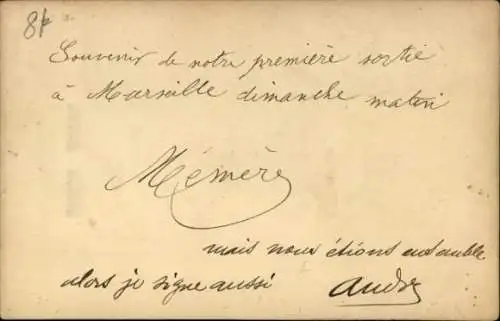 8f
Souvenir de notre première sortie
à Marseille dimanche matin
Mémère
mais nous étions ensemble
alors je signe aussi André